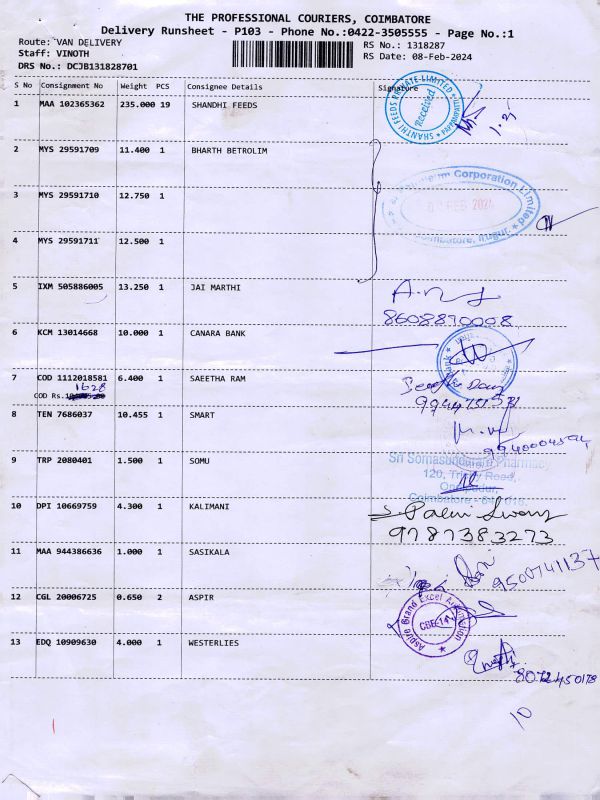 THE PROFESSIONAL COURIERS, COIMBATORE
Delivery Runsheet - P103 - Phone No.:0422-3505555 - Page No.:1
Route: VAN DELIVERY RS No.: 1318287
Staff: VINOTH RS Date: 08-Feb-2024
DRS No.: DCJB131828701
S No Consignment No Weight PCS Consignee Details Signature
1 MAA 102365362 235.000 19 SHANDHI FEEDS
SHANTHI FEEDS PRIVATE LIMITED
Received
2 MYS 29591709 11.400 1 BHARTH BETROLIM
Corporation Limited
FEB 2024
Coimbatore, Irugur
3 MYS 29591710 12.750 1
4 MYS 29591711 12.500 1
5 IXM 505886005 13.250 1 JAI MARTHI
8608870008
6 KCM 13014668 10.000 1 CANARA BANK
7 COD 1112018581 6.400 1 SAEETHA RAM
1628
COD Rs.
8 TEN 7686037 10.455 1 SMART
9 TRP 2080401 1.500 1 SOMU
Sri Somasundaram Pharmacy
120, Trichy Road,
Coimbatore
10 DPI 10669759 4.300 1 KALIMANI
9787383273
11 MAA 944386636 1.000 1 SASIKALA
9500741137
12 CGL 20006725 0.650 2 ASPIR
Aspire Brand Excel
CBE-14
13 EDQ 10909630 4.000 1 WESTERLIES
8072450178
10